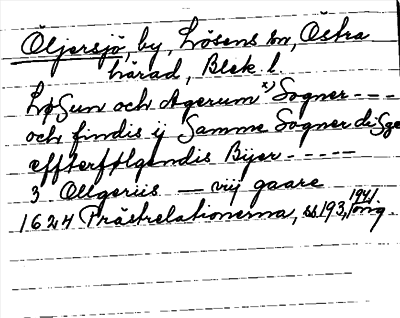 Öljersjö, by, Lösens sn, Östra
härad, Blek. l.
Løsun och Agerum x) Sogner - - -
och findis ij Samme Sogner diSse
effterfølgendis Bÿer - - - - -
3 Ollgeriis — vij gaare
1624 Prästrelationerna, s. 193, 1941 orig.